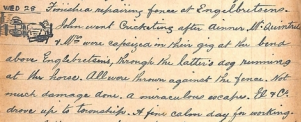 WED 29. Finished repairing fence at Engelbretsens.
John went Cricketing after dinner. McQuintries
& Mrs wore capsized in their gig at the bend
above Englebretsens, through the latter's dog running
at the horse. All wore thrown against the fence. Not
much damage done. A miraculous escape. El & Co.
drove up to township. A fine calm day for working.